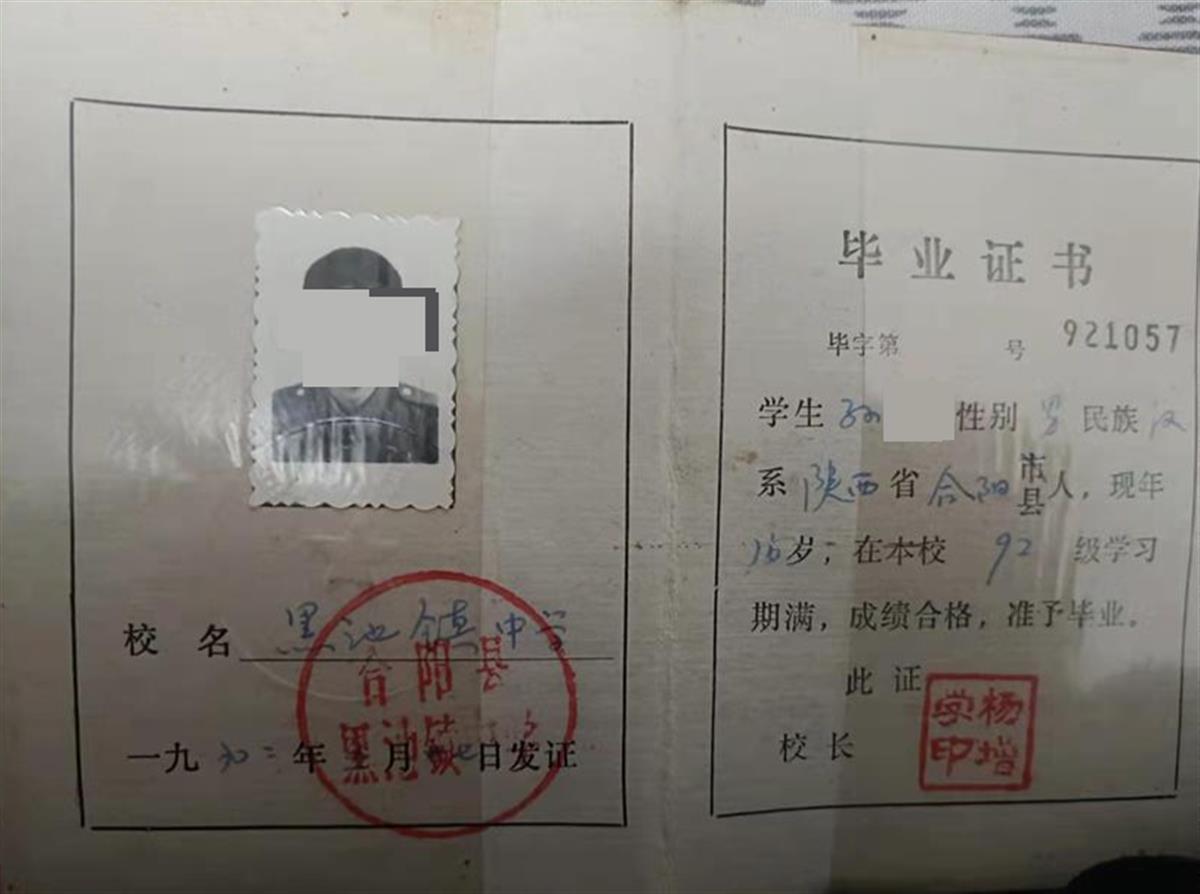 校 名 黑池镇中学
合阳县
黑池镇
一九九二年 月 日发证
毕业证书
毕字第 号 921057
学生 孙 性别 男 民族 汉
系 陕西 省 合阳 市县 人，现年
16岁，在本校 92 级学习
期满，成绩合格，准予毕业。
此 证
校 长
杨增学印